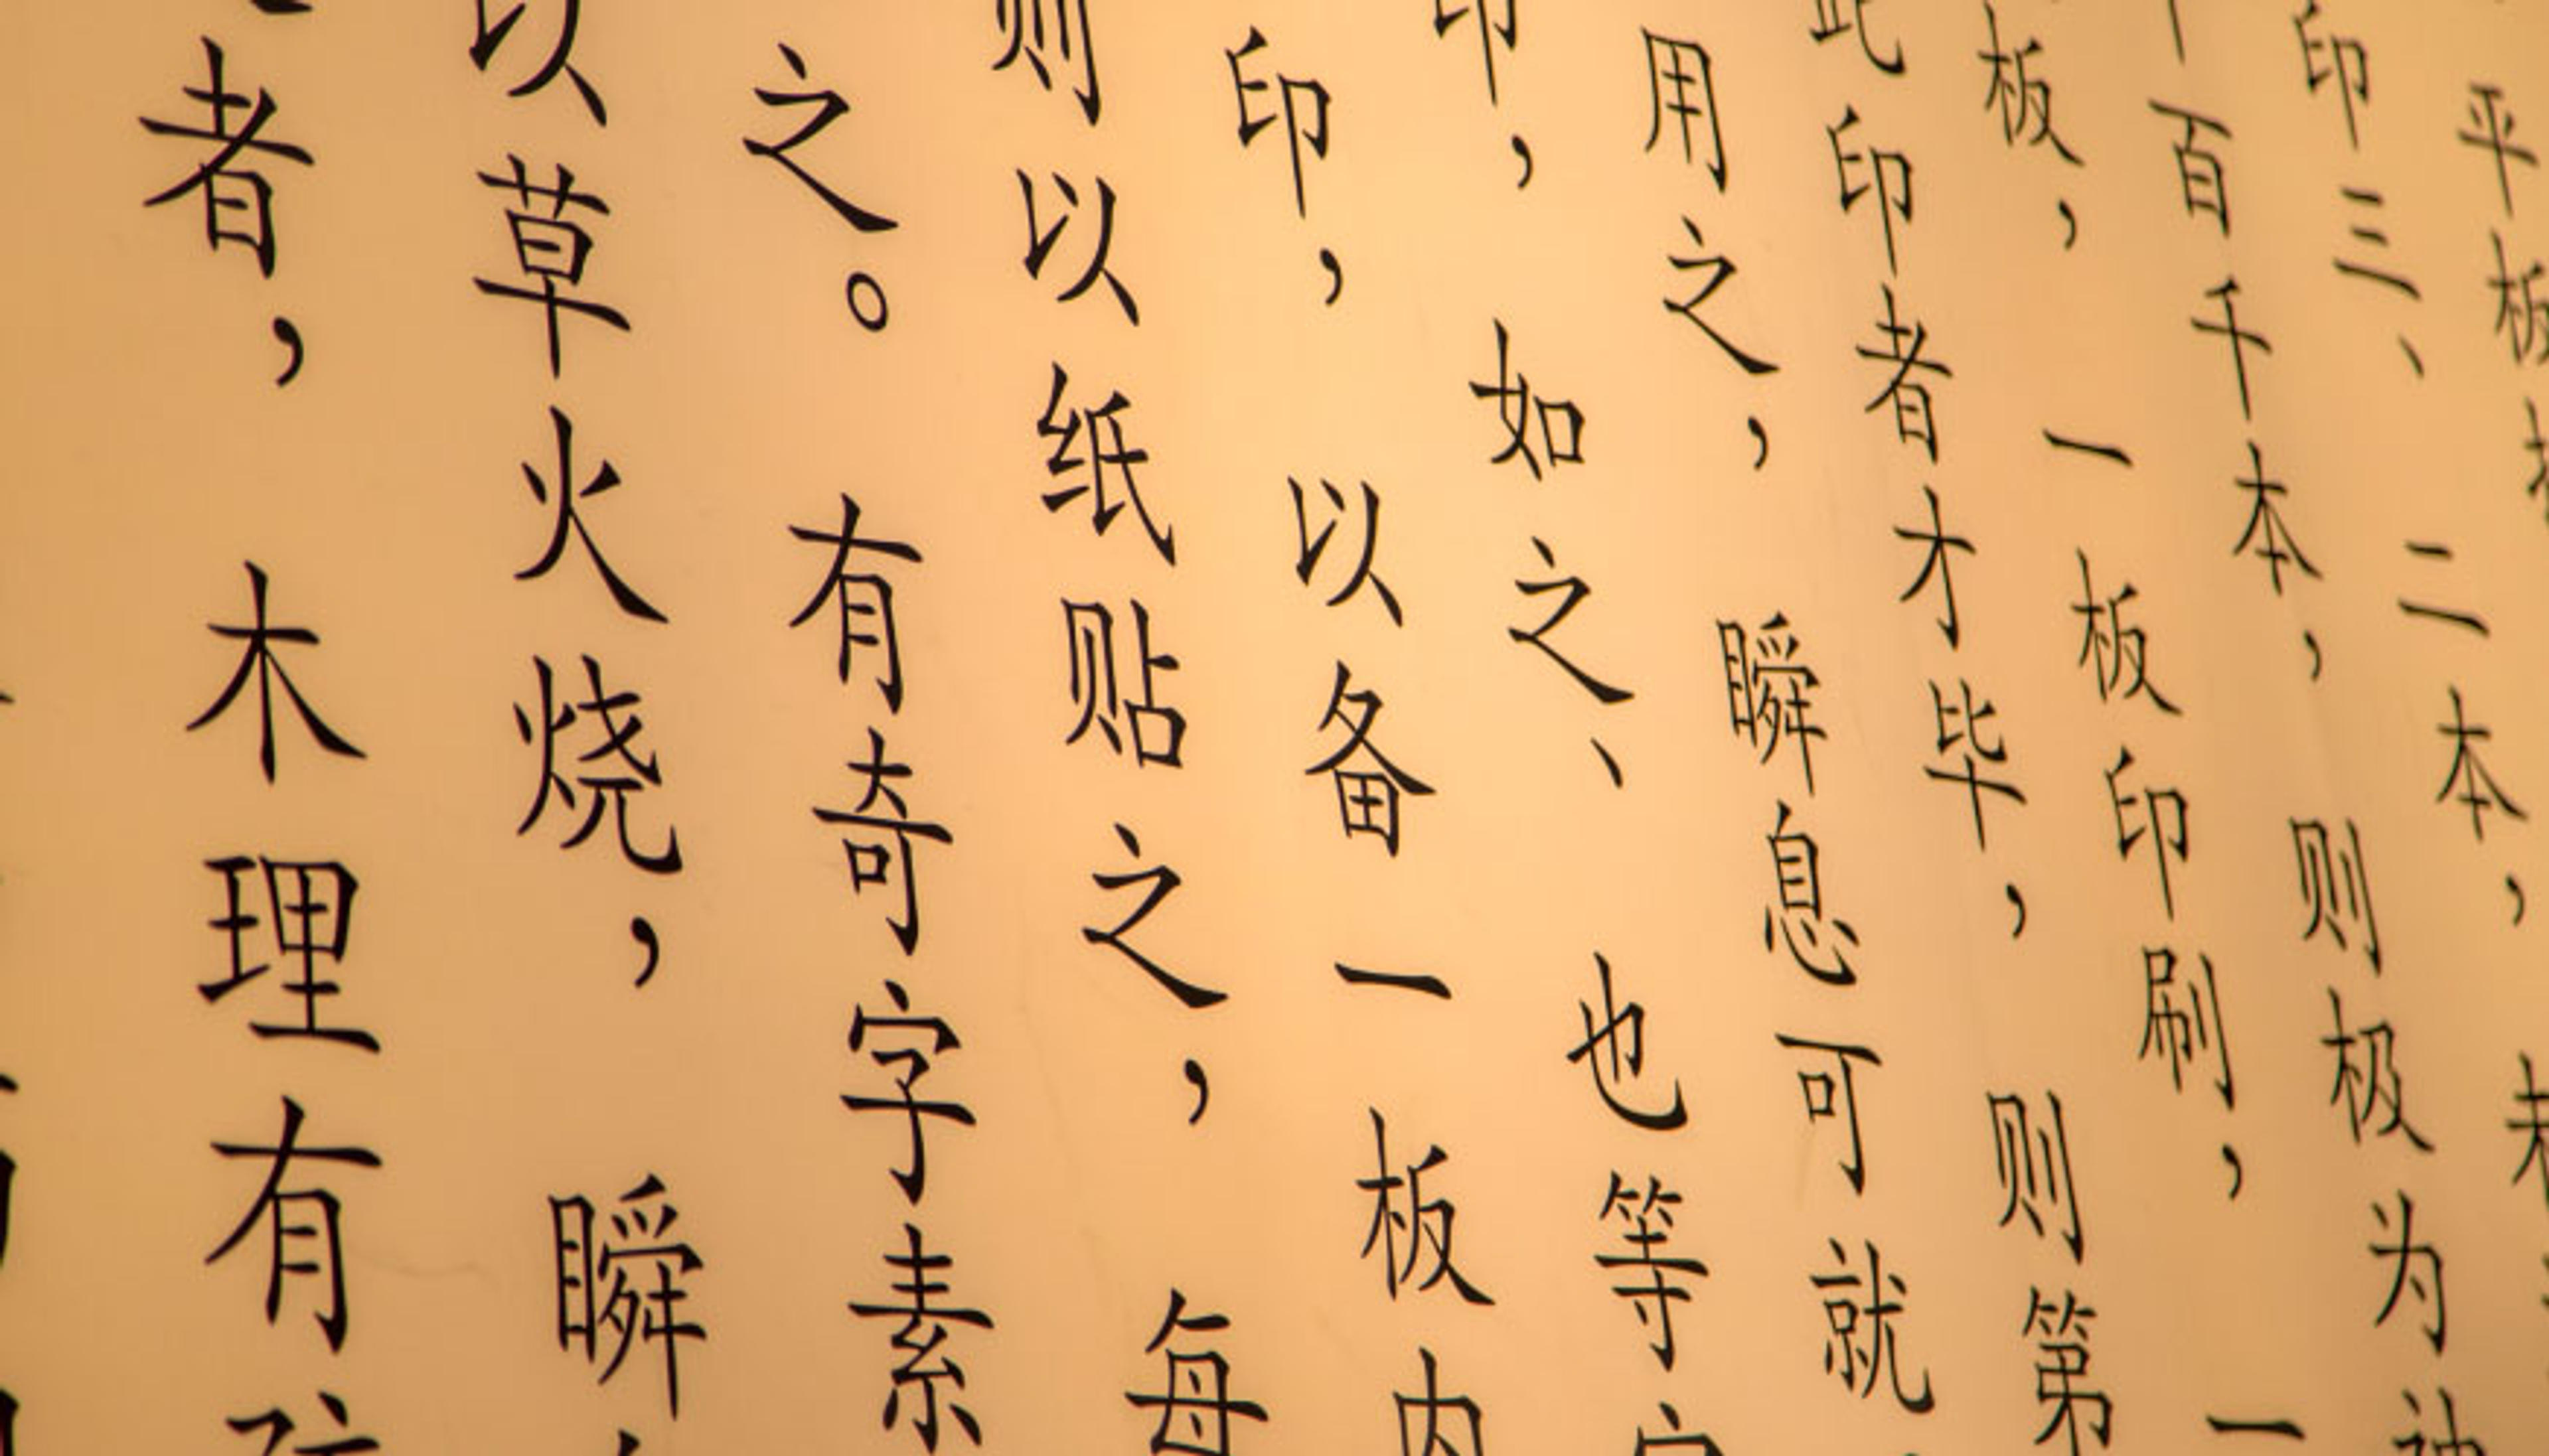 平板
印三、二本，
百千本，则极为神
板，一板印刷，一
此印者才毕，则第
用之，瞬息可就
印，如之、也等字
印，以备一板内
则以纸贴之，每
之。有奇字素
以草火烧，瞬
者，木理有